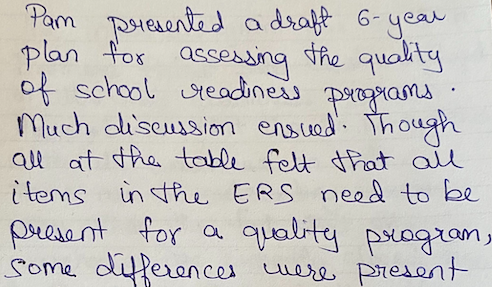 Pam presented a draft 6-year
plan for assessing the quality
of school readiness programs.
Much discussion ensued. Though
all at the table felt that all
items in the ERS need to be
present for a quality program,
some differences were present